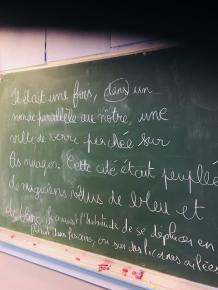 Il était une fois, dans un
monde parallèle au nôtre, une
ville de verre perchée sur
les nuages. Cette cité était peuplée
de magiciens vêtus de bleu et
de blanc. Ils avaient l'habitude de se déplacer en
, ou sur des licornes ailées